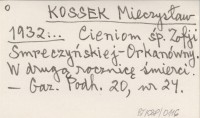 KOSSEK Mieczysław
1932... Cieniom śp. Zofji
Smreczyńskiej-Orkanówny.
W drugą rocznicę śmierci.
– Gaz. Podh. 20, nr 24.